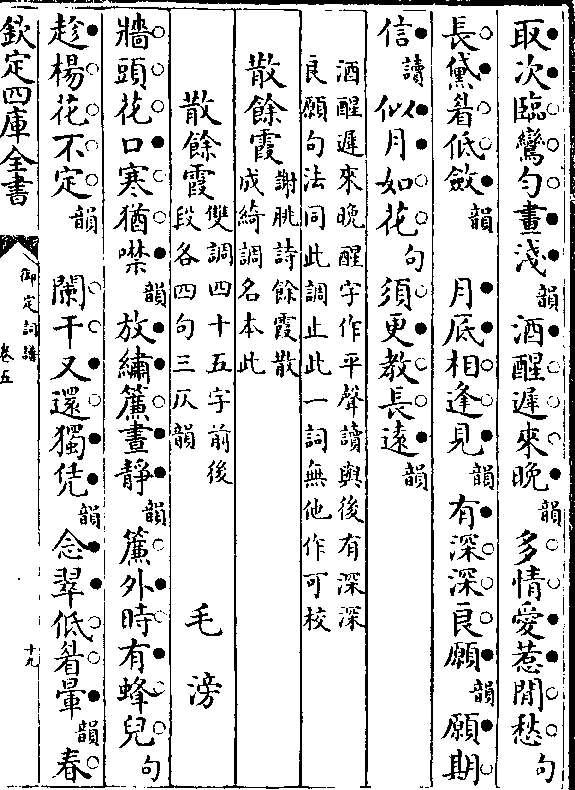 取次臨鸞勻畫淺韻酒醒遲來晚韻多情愛惹閒愁句
長黛眉低斂韻月底相逢見韻有深深良願韻願期
信讀似月如花句須更教長遠韻
酒醒遲來晚醒字作平聲讀與後有深深
良願句法同此調止此一詞無他作可校
散餘霞謝朓詩餘霞散
成綺調名本此
散餘霞雙調四十五字前後
段各四句三仄韻毛滂
牆頭花口寒猶噤韻放繡簾晝靜韻簾外時有蜂兒句
趁楊花不定韻闌干又還獨凭韻念翠低眉暈韻春
欽定四庫全書
御定詞譜
卷五
十九